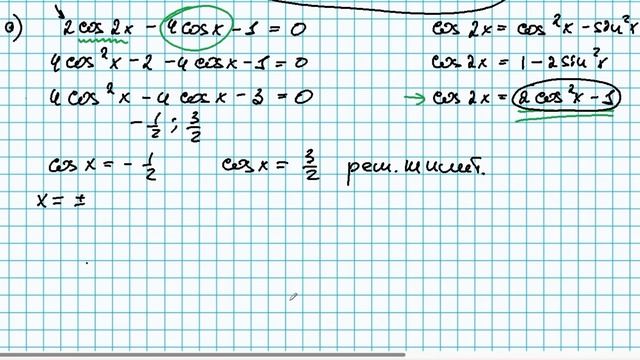 2 cos 2x - 4cosx - 1 = 0
4cos²x - 2 - 4cosx - 1 = 0
4cos²x - 4cosx - 3 = 0
-1/2 ; 3/2
cosx = - 1/2 cosx = 3/2 реш.
x = ±
cos 2x = cos²x - sin²x
cos 2x = 1 - 2sin²x
→ cos 2x = 2cos²x - 1